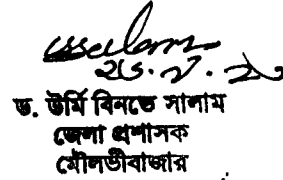 ড. উর্মি বিনতে সালাম
জেলা প্রশাসক
মৌলভীবাজার